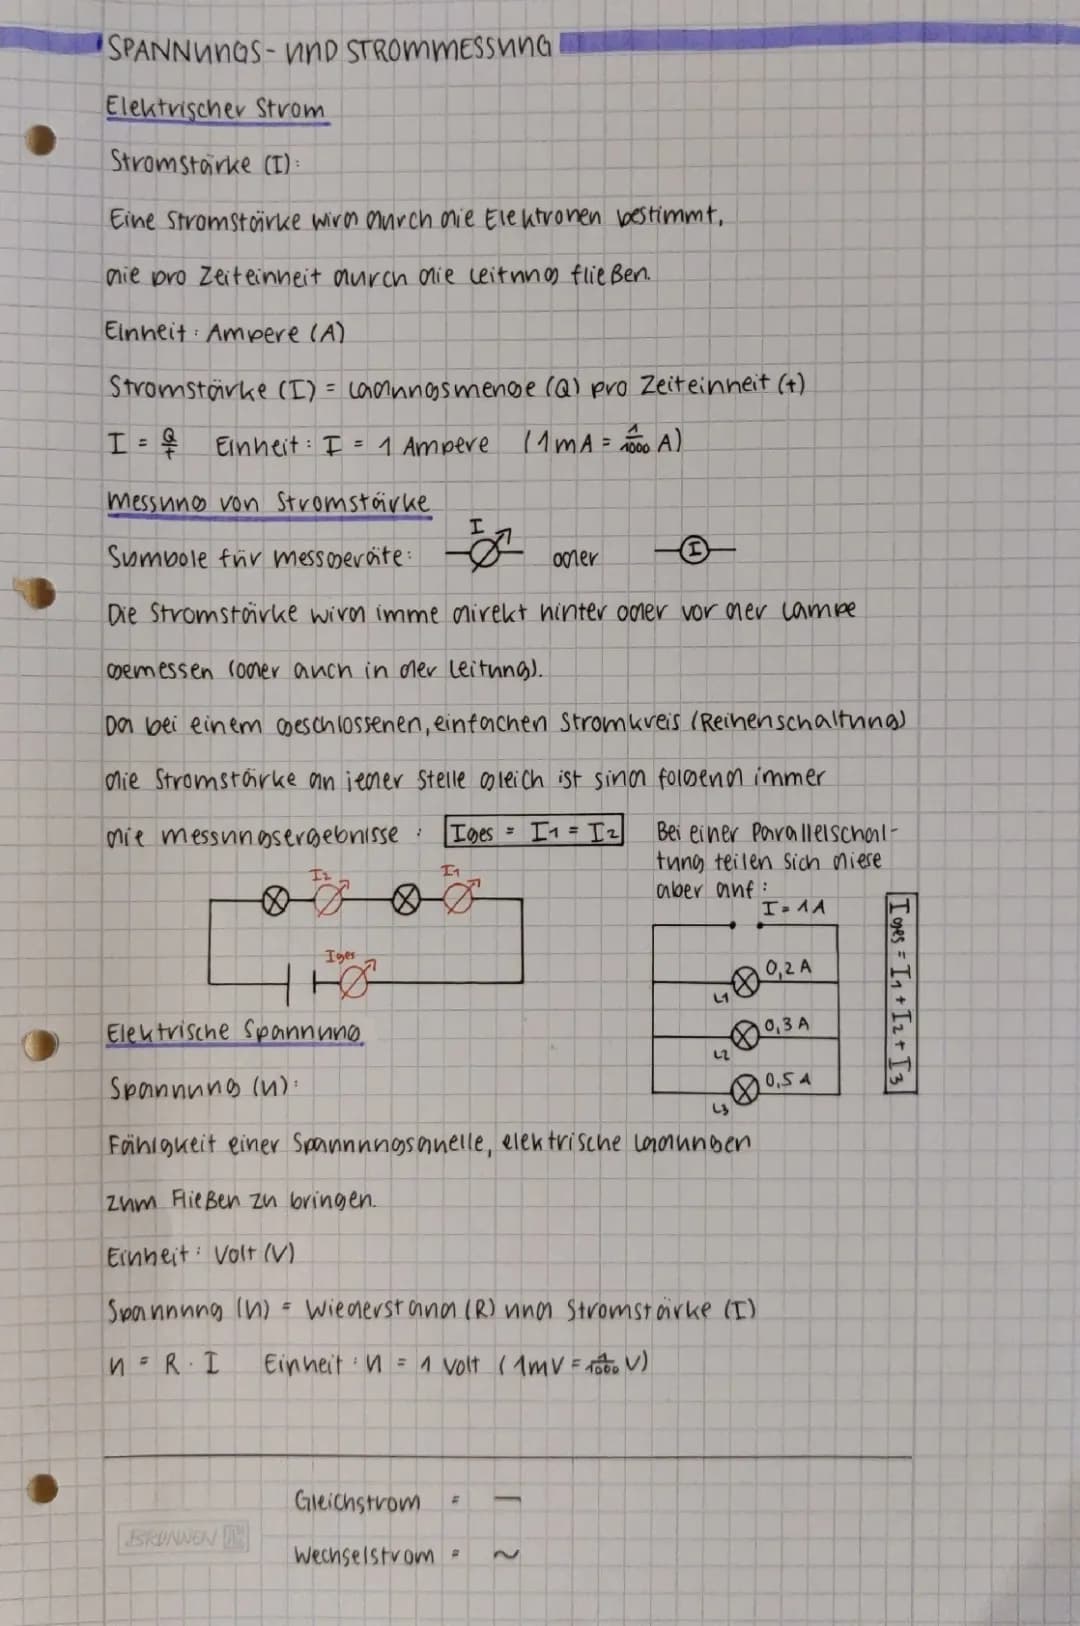 SPANNUNGS- UND STROMMESSUNG
Elektrischer Strom
Stromstärke (I):
Eine Stromstärke wird durch die Elektronen bestimmt,
die pro Zeiteinheit durch die Leitung fließen.
Einheit: Ampere (A)
Stromstärke (I) = Ladungsmenge (Q) pro Zeiteinheit (t)
I = Q/t Einheit: I = 1 Ampere (1mA = 1/1000 A)
Messung von Stromstärke
I
Symbole für Messgeräte: oder I
Die Stromstärke wird imme direkt hinter oder vor der Lampe
gemessen (oder auch in der Leitung).
Da bei einem geschlossenen, einfachen Stromkreis (Reihenschaltung)
die Stromstärke an jeder Stelle gleich ist sind folgend immer
die Messungsergebnisse: Iges = I1 = I2
Bei einer Parallelschal-
tung teilen sich diese
aber auf:
I2 I1
Iges
I = 1A
0,2 A
L1
0,3 A
L2
0,5 A
L3
Iges = I1 + I2 + I3
Elektrische Spannung
Spannung (U):
Fähigkeit einer Spannungsquelle, elektrische Ladungen
zum Fließen zu bringen.
Einheit: Volt (V)
Spannung (U) = Wiederstand (R) und Stromstärke (I)
U = R · I Einheit: U = 1 Volt (1mV = 1/1000 V)
Gleichstrom = —
BRUNNEN
Wechselstrom = ~